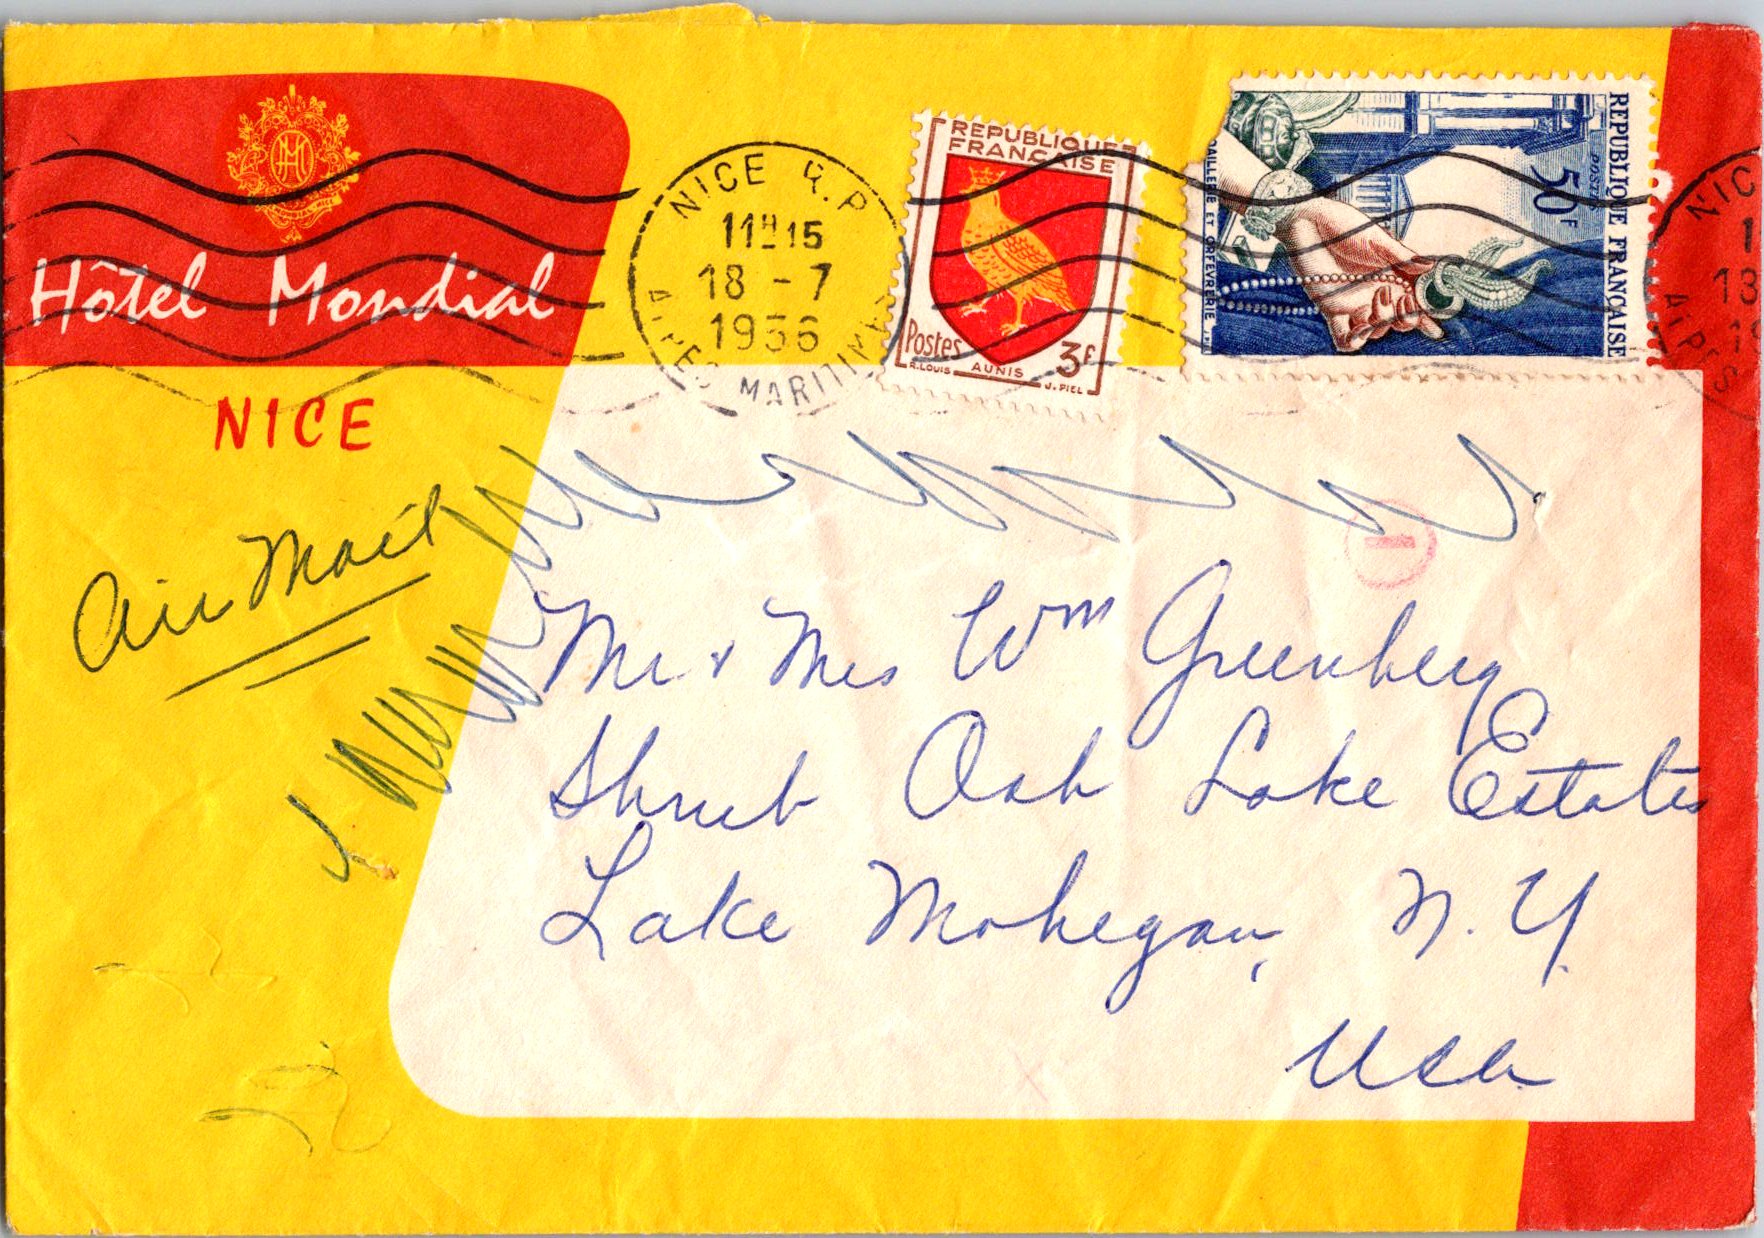 Hôtel Mondial
NICE
NICE R.P
11H15
18 - 7
1956
ALPES MARITIMES
REPUBLIQUE
FRANÇAISE
Postes 3F
R. LOUIS AUNIS J. PIEL
REPUBLIQUE FRANÇAISE
POSTES
50F
JOAILLERIE ET ORFÈVRERIE
NIC
Air Mail
Mr & Mrs Wm Greenberg
Shrub Oak Lake Estates
Lake Mohegan, N.Y.
USA